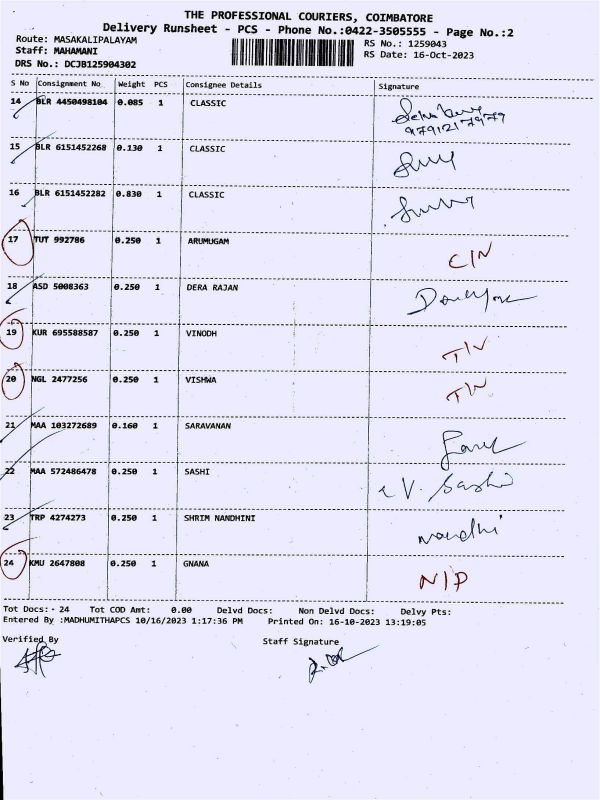 THE PROFESSIONAL COURIERS, COIMBATORE
Delivery Runsheet - PCS - Phone No.:0422-3505555 - Page No.:2
Route: MASAKALIPALAYAM RS No.: 1259043
Staff: MAHAMANI RS Date: 16-Oct-2023
DRS No.: DCJB125904302
S No Consignment No Weight PCS Consignee Details Signature
14 BLR 4450498104 0.085 1 CLASSIC
9791217979
15 BLR 6151452268 0.130 1 CLASSIC
16 BLR 6151452282 0.830 1 CLASSIC
17 TUT 992786 0.250 1 ARUMUGAM C/N
18 ASD 5008363 0.250 1 DERA RAJAN
19 KUR 695588587 0.250 1 VINODH T/N
20 NGL 2477256 0.250 1 VISHWA T/N
21 MAA 103272689 0.160 1 SARAVANAN
22 MAA 572486478 0.250 1 SASHI V. Sashi
23 TRP 4274273 0.250 1 SHRIM NANDHINI Nandhi
24 KMU 2647808 0.250 1 GNANA N/P
Tot Docs:- 24 Tot COD Amt: 0.00 Delvd Docs: Non Delvd Docs: Delvy Pts:
Entered By :MADHUMITHAPCS 10/16/2023 1:17:36 PM Printed On: 16-10-2023 13:19:05
Verified By Staff Signature